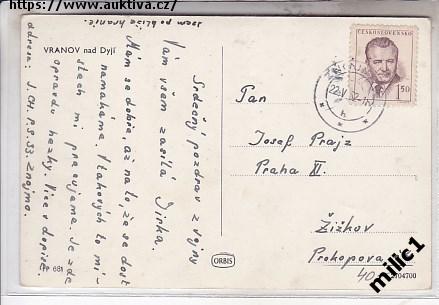 https://www.auktiva.cz/
jsem poblíže hranic.
VRANOV nad Dyjí
Srdečný pozdrav z vojny
Vám všem zasílá Jirka.
Mám se dobře, až na to, že se dost
namaháme. V takových to mí-
stech mi pracujeme. Je zde
opravdu hezky. Více v dopise.
adresa: J.CH. P.S. 33. Znojmo.
F 681
ORBIS
ČESKOSLOVENSKO
1,50
22.V
h
Pan
Josef Prajz
Praha XI.
Žižkov
Prokopova
40
04700
milic1